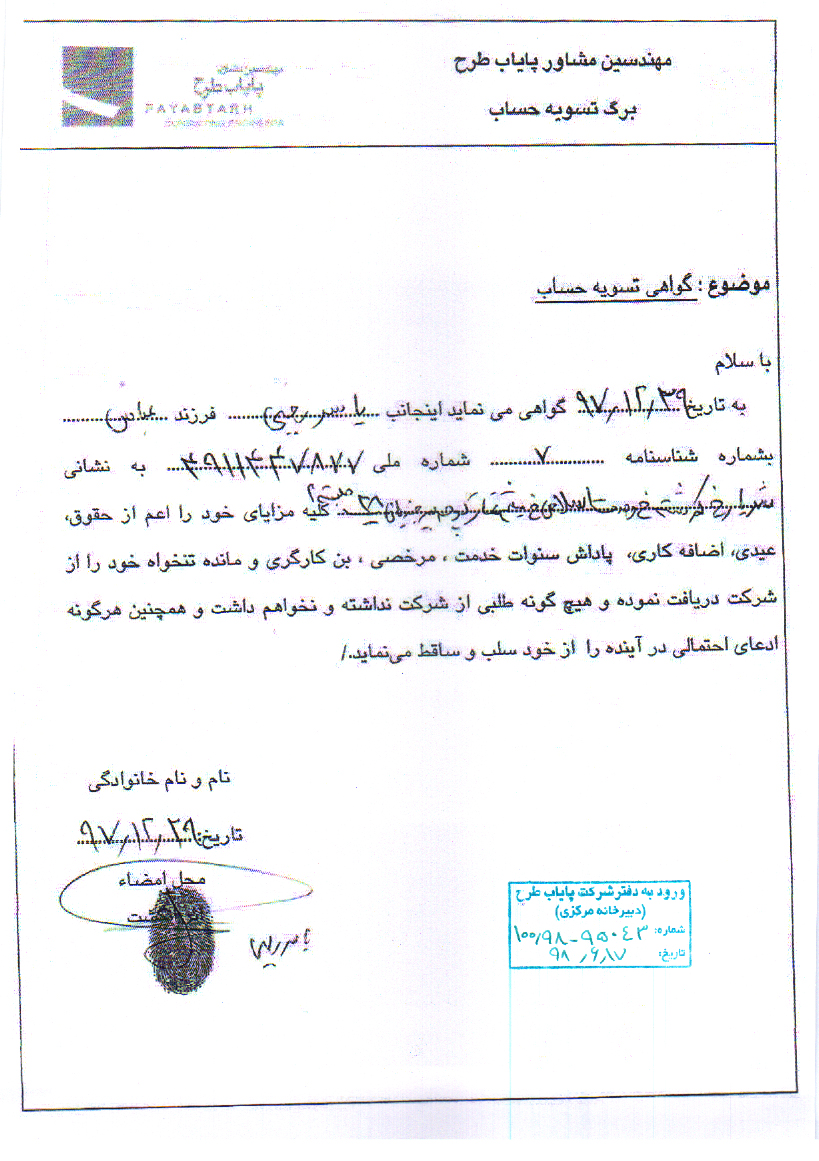 مهندسین مشاور پایاب طرح
برگ تسویه حساب
مهندسین مشاور
پایاب طرح
PAYABTARH
موضوع : گواهی تسویه حساب
با سلام
به تاریخ ۹۷٫۱۲٫۲۹ گواهی می نماید اینجانب یاسر رجبی فرزند عباس
بشماره شناسنامه ۷ شماره ملی به نشانی
کلیه مزایای خود را اعم از حقوق،
عیدی، اضافه کاری، پاداش سنوات خدمت ، مرخصی ، بن کارگری و مانده تنخواه خود را از
شرکت دریافت نموده و هیچ گونه طلبی از شرکت نداشته و نخواهم داشت و همچنین هرگونه
ادعای احتمالی در آینده را از خود سلب و ساقط می‌نماید./
نام و نام خانوادگی
تاریخ: ۹۷٫۱۲٫۲۹
محل امضاء
ورود به دفتر شرکت پایاب طرح
(دبیرخانه مرکزی)
شماره: ۱۰۰٫۹۸-۹۵۰۴۳
تاریخ: ۹۸٫۶٫۱۷